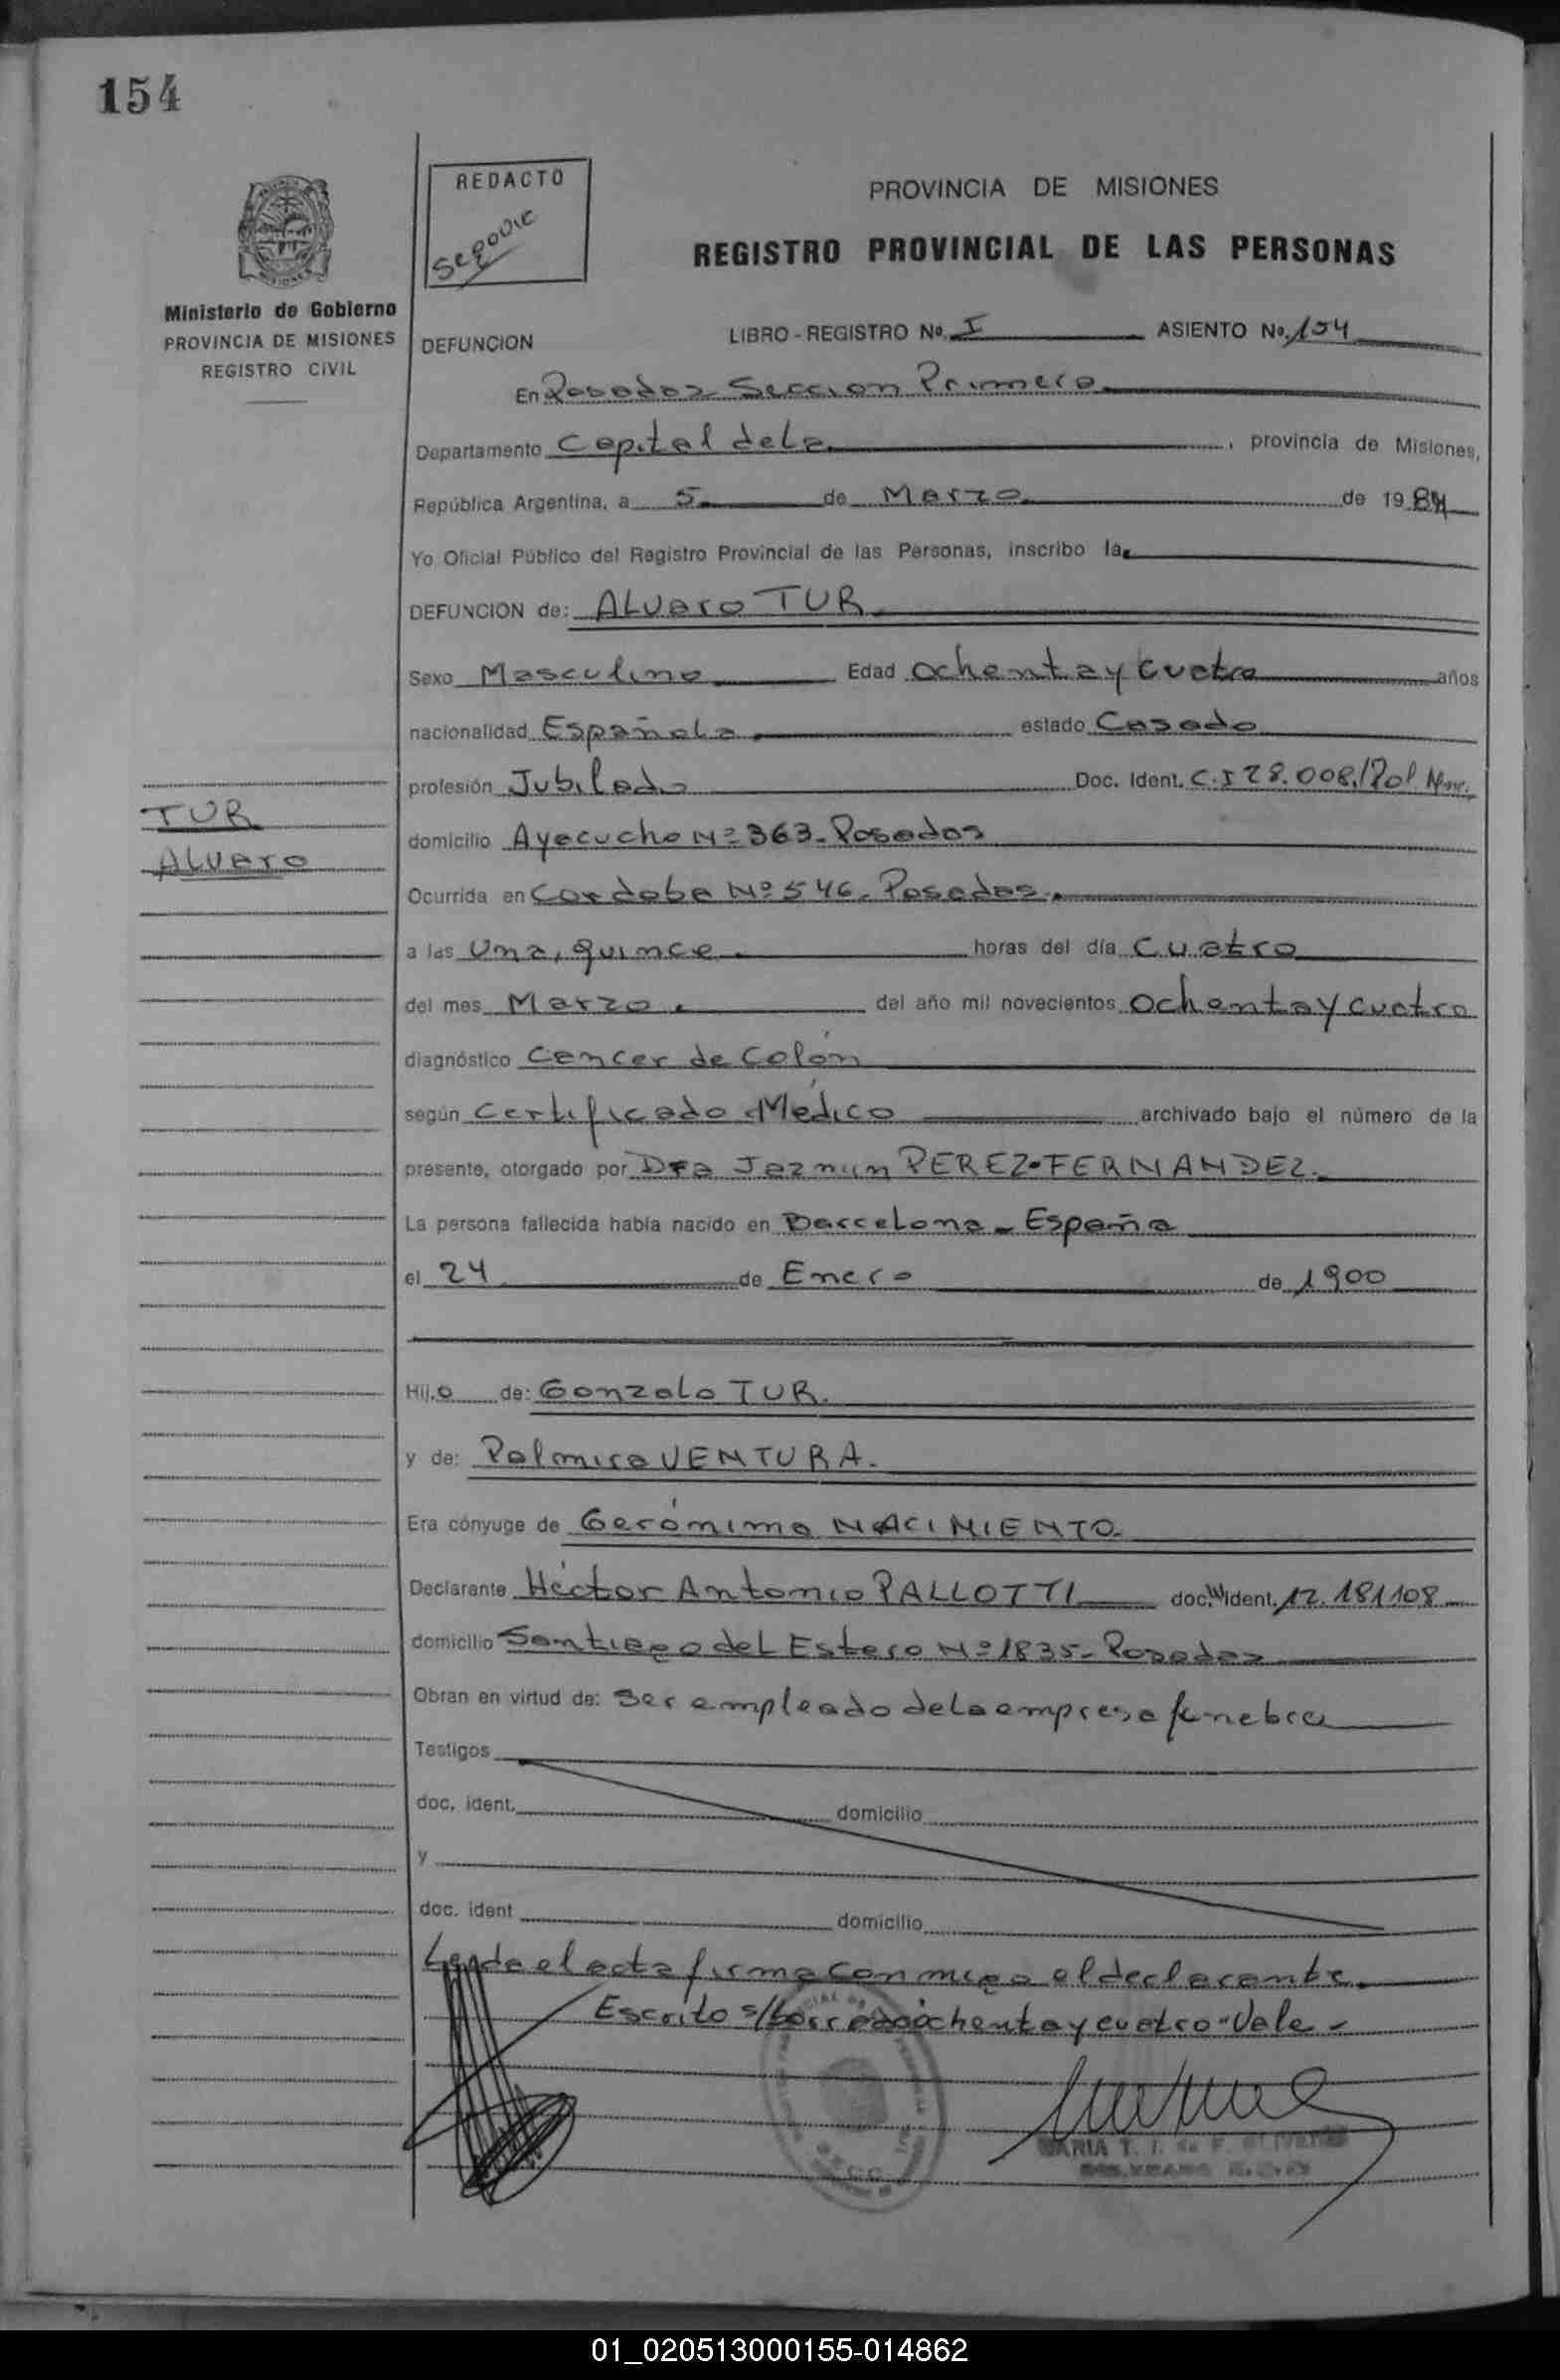 154
REDACTO
Segovic
PROVINCIA DE MISIONES
REGISTRO PROVINCIAL DE LAS PERSONAS
Ministerio de Gobierno
PROVINCIA DE MISIONES
REGISTRO CIVIL
DEFUNCION LIBRO - REGISTRO No. I ASIENTO No. 154
En Posadas Sección Primera
Departamento Capital de la , provincia de Misiones,
República Argentina, a 5 de Marzo de 1984
Yo Oficial Público del Registro Provincial de las Personas, inscribo la
DEFUNCION de: ALVaro TUR
Sexo Masculino Edad Ochenta y Cuatro años
nacionalidad Española estado Casado
profesión Jubilado Doc. Ident. C.I 28.008./Pol. Mnes.
TUR
ALVaro
domicilio Ayacucho Nº 363- Posadas
Ocurrida en Cordoba Nº 546- Posadas.
a las Una, quince horas del día Cuatro
del mes Marzo. del año mil novecientos Ochenta y cuatro
diagnóstico Cancer de Colón
según Certificado Médico archivado bajo el número de la
presente, otorgado por Dra Jazmin PEREZ-FERNANDEZ.
La persona fallecida había nacido en Barcelona - España
el 24 de Enero de 1900
Hij.o de: Gonzalo TUR.
y de: Palmira VENTURA.
Era cónyuge de Gerónima NACIMIENTO.
Declarante Héctor Antonio PALLOTTI doc. ident. 12.181108
domicilio Santiago del Estero Nº 1835- Posadas
Obran en virtud de: Ser empleado de la empresa fúnebre
Testigos
doc. ident. domicilio
y
doc. ident domicilio
Leída el acta firma conmigo el declarante.
Escrito s/borrado "ochenta y cuatro" Vale-
MARIA T. I. de F.
01_020513000155-014862